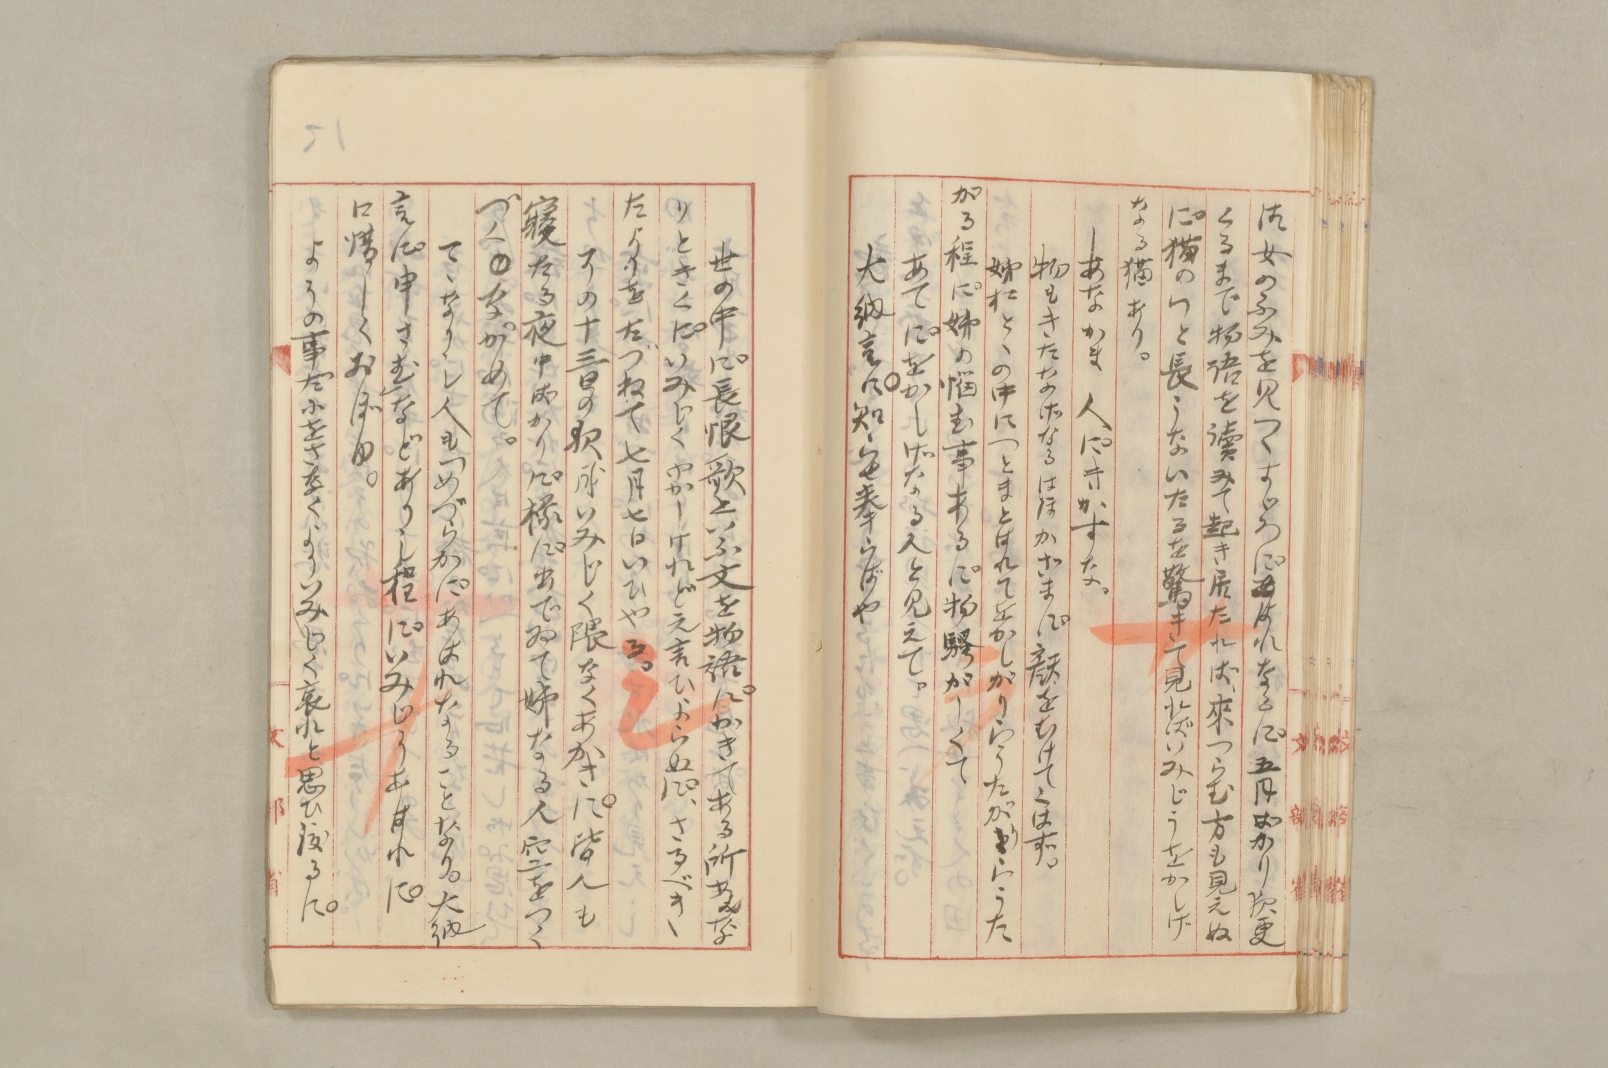 御女のふみを見つゝすゞろにあはれなるに、五月ばかり夜更
くるまで物語を讀みて起き居たれば、來つらむ方も見えぬ
に、猫のいと長うないたるを驚きて見ればいみじうをかしげ
なる猫あり。
あなかま 人にきかすな。
物もきたなげなるはほかざまに、顔をむけてくはず。
姉 の中につとまとはれてをかしがりらうたがりらうた
がる程に、姉の惱む事あるに、物騒がしくて
あてに、をかしげなる人と見えて。
大納言に知らせ奉らばや
世の中に、長恨歌といふ文を物語に、かきてある所あんな
りときくに、いみじくゆかしけれど元言ひよらぬに、さるべき
たよりをたづねて七月七日いひやる。
その十三日の夜月いみじく隈なくあかきに、皆人も
寝たる夜中ばかりに、椽に、出でゐて姉なる人空をつく
づくながめて。
なりし人も めづらかに、あはれなることなり。大納
言に、申さむなどありし程に、いみじうあはれに、
口惜しくおぼゆ。
の事だに をさなくよりいみじく哀れと思ひ渡るに。
文部省